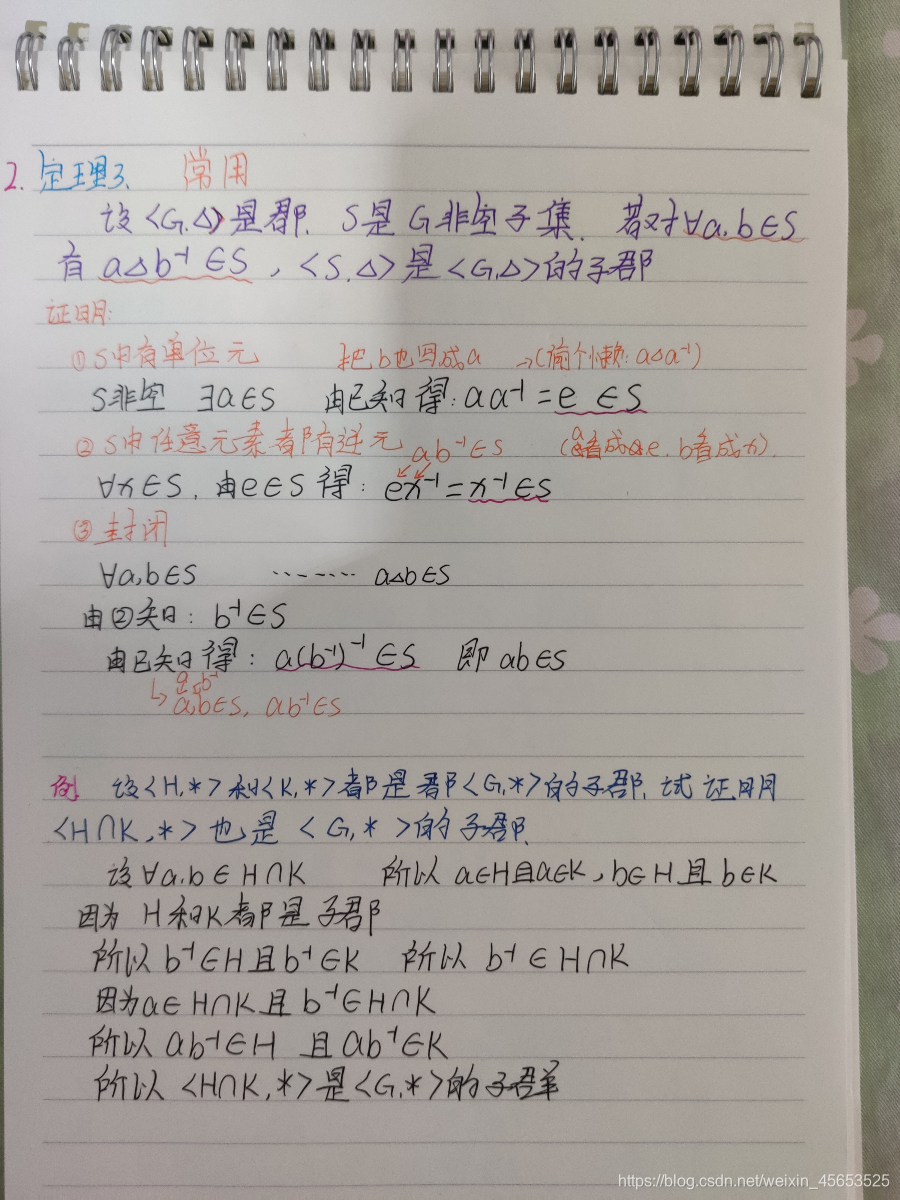 2. 定理3. 常用
设<G,△>是群. S是G非空子集. 若对∀a,b∈S
有 a△b⁻¹∈S , <S,△>是<G,△>的子群
证明:
①S中有单位元 把b也写成a →(偷个懒: a△a⁻¹)
S非空 ∃a∈S 由已知得: aa⁻¹=e ∈S
②S中任意元素都有逆元 ab⁻¹∈S (a看成e, b看成x).
∀x∈S, 由e∈S得: ex⁻¹=x⁻¹∈S
③封闭
∀a,b∈S ········ a△b∈S
由②知: b⁻¹∈S
由已知得: a(b⁻¹)⁻¹∈S 即 ab∈S
a b⁻¹
↳ a,b∈S, ab⁻¹∈S
例 设<H,*>和<K,*>都是群<G,*>的子群. 试证明
<H∩K,*>也是 <G,*>的子群.
设∀a,b∈H∩K 所以 a∈H且a∈K,b∈H且b∈K
因为 H和K都是子群
所以 b⁻¹∈H且b⁻¹∈K 所以 b⁻¹∈H∩K
因为a∈H∩K且 b⁻¹∈H∩K
所以 ab⁻¹∈H 且ab⁻¹∈K
所以 <H∩K,*>是<G,*>的子群
https://blog.csdn.net/weixin_45653525